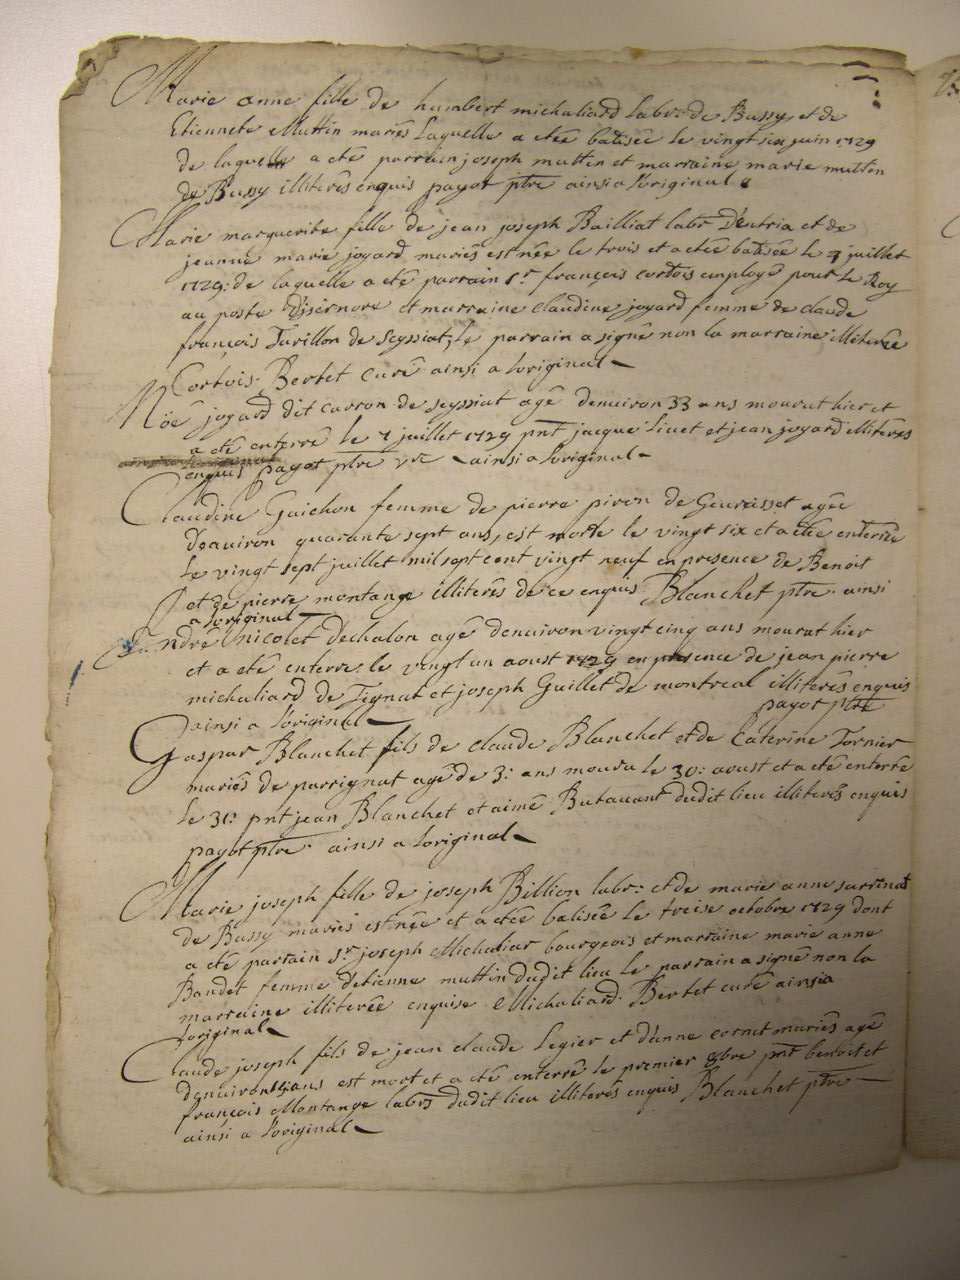 Marie anne fille de humbert michaliard labr. de Bussy, et de
Etiennete Muttin mariés laquelle a etée batisée le vingt six juin 1729
de laquelle a eté parrain joseph muttin et marraine marie mutton
de Bussy illiterês enquis payot ptre ainsi a l'original
Marie marguerite fille de jean joseph Bailliat labr D'entria et de
jeanne marie joyard mariês est née le trois et a etée batisée le 4 juillet
1729: de laquelle a eté parrain sr. françois cortois employé pour le Roy
au poste D'isernore et marraine claudine joyard femme de claude
françois Turillon de Seyssiat, le parrain a signé non la marraine illiterêe
Cortois. Bertet curé ainsi a l'original
Nöé joyard dit carron de seyssiat agé denuiron 33 ans mourut hier et
a eté enterré le 7 juillet 1729 pnt jacque Liuet et jean joyard illiterês
enquis payot ptre vre ainsi a l'original
Claudine Guichon femme de pierre piron de Geuraisset agée
d'enuiron quarante sept ans, est morte le vingt six et a etée enterrée
Le vingt sept juillet mil sept cent vingt neuf en presence de Benoit
et de pierre montange illiterês de ce enquis Blanchet ptre. ainsi
a l'original
André Nicolet Dechalon agé denuiron vingt cinq ans mourut hier
et a eté enterre le vingt un aoust 1729 en presence de jean pierre
michaliard de Tignat et joseph Guillet de montreal illiterês enquis
payot ptre
ainsi a l'original
Gaspar Blanchet fils de claude Blanchet et de Caterine Tornier
mariês de parrignat agé de 3: ans mouru le 30: aoust et a eté enterré
le 31: pnt jean Blanchet et aimé Butauant dudit lieu illiterês enquis
payot ptre. ainsi a l'original
Marie joseph fille de joseph Billion labr: et de marie anne sarrinat
de Bussy mariés est née et a etée batisée le treise octobre 1729 dont
a eté parrain sr. joseph Michaliar bourgeois et marraine marie anne
Bandet femme d'etienne muttin dudit lieu le parrain a signé non la
marraine illiterée enquise Michaliard. Bertet curé ainsi a
l'original
Claude joseph fils de jean claude Legier et d'anne cornet mariês agé
denuiron ans est mort et a eté enterré le premier 8bre pnt benoit et
françois Montange labrs dudit lieu illiterês enquis Blanchet ptre
ainsi a l'original